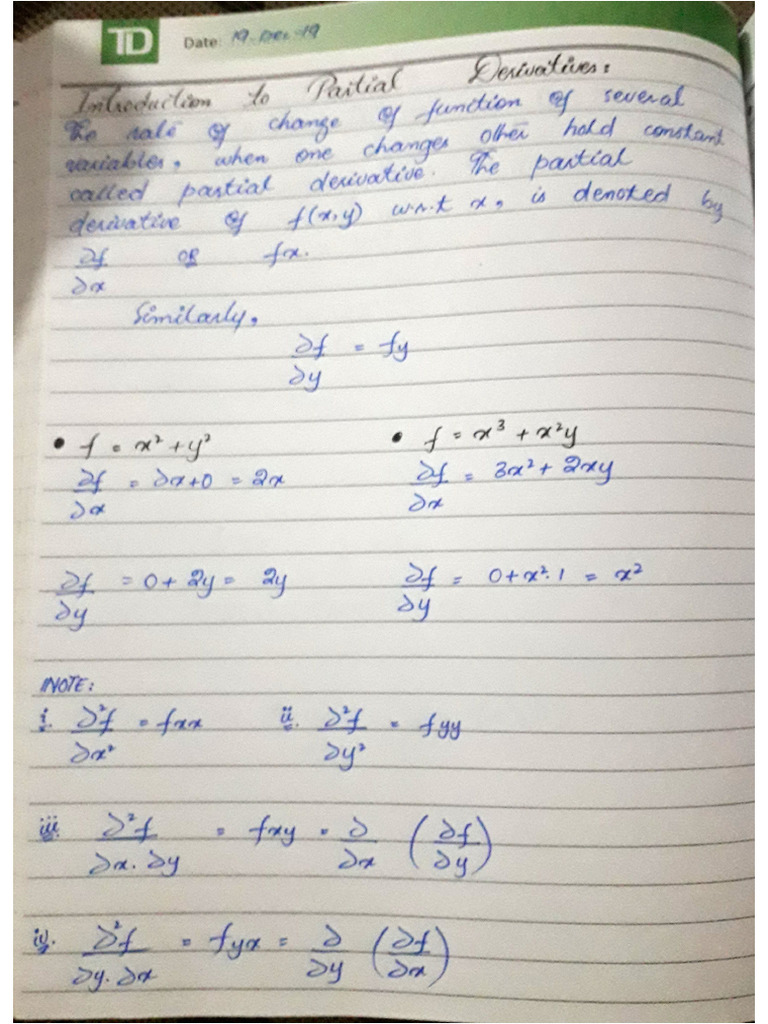 TD Date: 19-Dec-19
Introduction to Partial Derivatives:
The rate of change of function of several
variables, when one changes other hold constant
called partial derivative. The partial
derivative of f(x,y) w.r.t x, is denoted by
∂f/∂x or fx.
Similarly,
∂f/∂y = fy
• f = x² + y² • f = x³ + x²y
∂f/∂x = 2x+0 = 2x ∂f/∂x = 3x² + 2xy
∂f/∂y = 0 + 2y = 2y ∂f/∂y = 0 + x².1 = x²
NOTE:
i. ∂²f/∂x² = fxx ii. ∂²f/∂y² = fyy
iii. ∂²f/∂x.∂y = fxy = ∂/∂x (∂f/∂y)
iv. ∂²f/∂y.∂x = fyx = ∂/∂y (∂f/∂x)